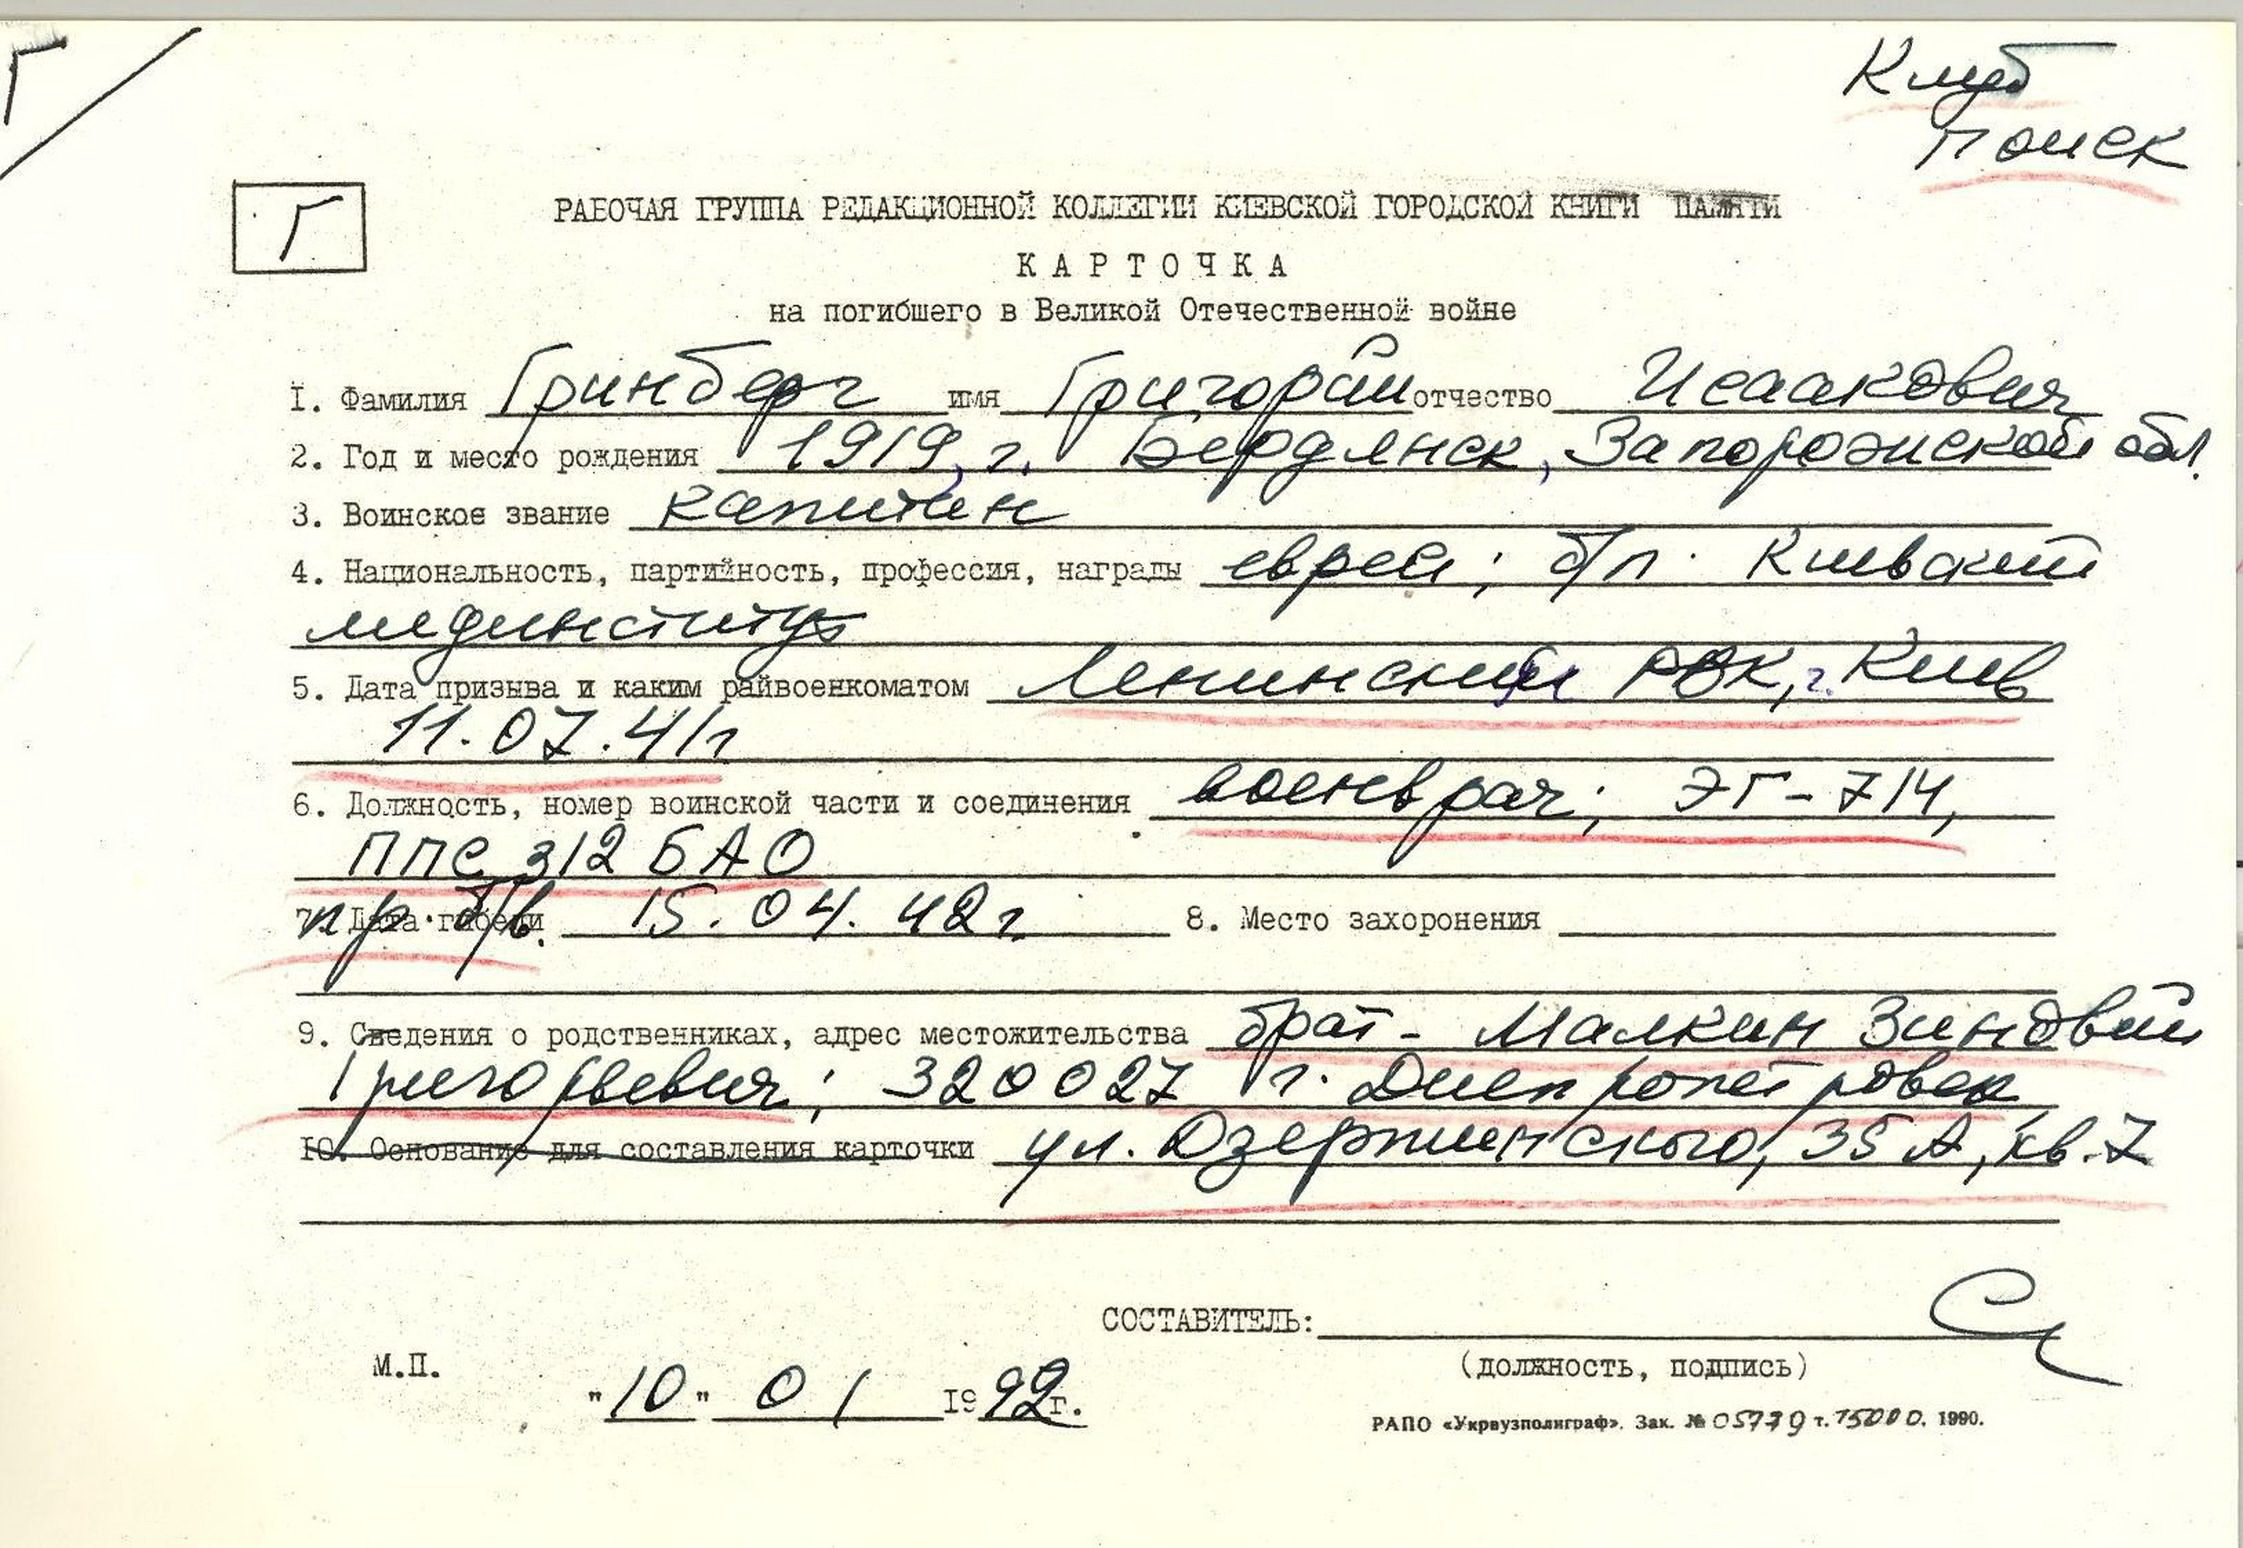 Г
Клуб
поиск
Г
РАБОЧАЯ ГРУППА РЕДАКЦИОННОЙ КОЛЛЕГИИ КИЕВСКОЙ ГОРОДСКОЙ КНИГИ ПАМЯТИ
КАРТОЧКА
на погибшего в Великой Отечественной войне
1. Фамилия Гринберг имя Григорий отчество Исаакович
2. Год и место рождения 1919, г. Бердянск, Запорожской обл.
3. Воинское звание капитан
4. Национальность, партийность, профессия, награды еврей; б/п. Киевский
мединститут
5. Дата призыва и каким райвоенкоматом Ленинский РВК, г. Киев
11.07.41г
6. Должность, номер воинской части и соединения военврач; ЭГ-714,
ППС 312 БАО
7. Дата гибели пр. б/в. 15.04.42г 8. Место захоронения
9. Сведения о родственниках, адрес местожительства брат - Малкин Зиновий
Григорьевич; 320027 г. Днепропетровск
10. Основание для составления карточки ул. Дзержинского, 35А, кв.7
СОСТАВИТЕЛЬ:
(должность, подпись)
М.П.
"10" 01 1992г.
РАПО «Укрвузполиграф». Зак. № 05779 т. 15000. 1990.